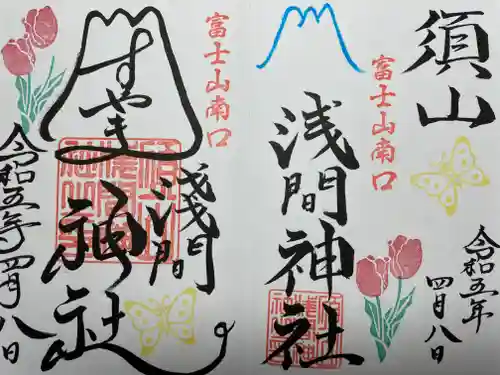 須山
富士山南口
浅間神社
令和五年
四月八日
富士山南口
すやま
浅間
神社
令和五年四月八日